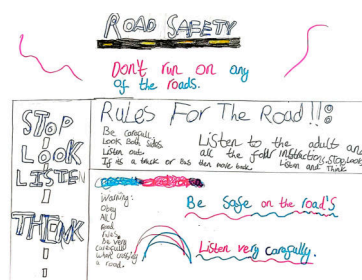 ROAD SAFETY
Don't run on any
of the roads.
STOP
LOOK
LISTEN
THINK
RULES FOR The ROAD !!!
Be carefull
Look Both sides
Listen out
If its a truck or bus then move back.
Listen to the adult and
all the instructions, stop, look,
Listen and Think
Warning:
Obey
ALL
road
rules
be very
carefull
when crossing
a road.
Be Safe on the road's
Listen very carefully.